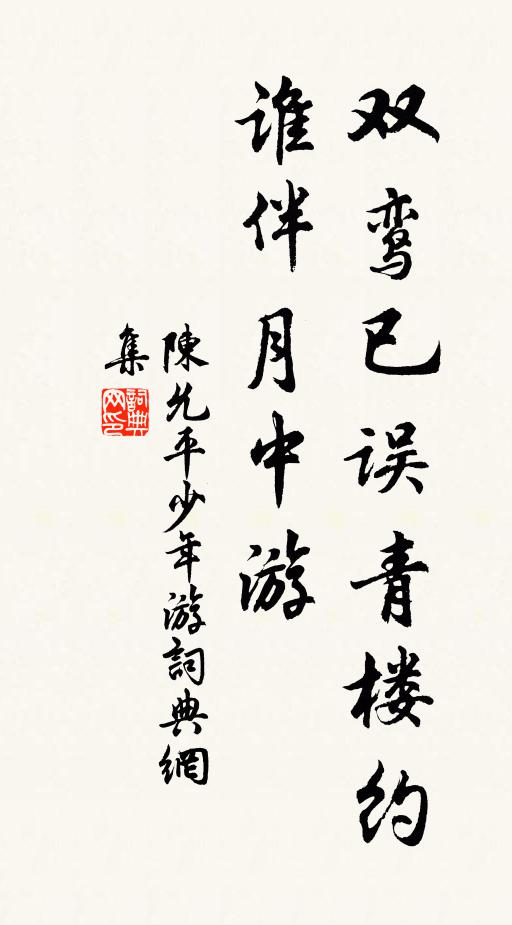 双鸾已误青楼约
谁伴月中游
陳允平少年游詞典網
集
詞典
网印